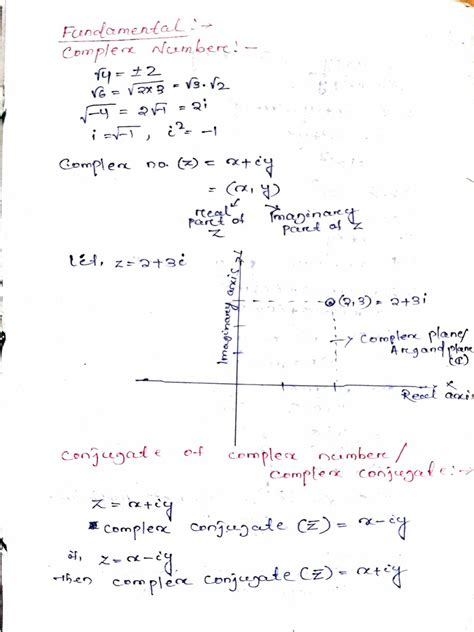 Fundamental :-
Complex Number :-
√4 = ±2
√6 = √2×3 = √3·√2
√-4 = 2√-1 = 2i
i = √-1 , i² = -1
Complex no. (z) = x+iy
= (x, y)
real part of z
Imaginary part of z
let, z = 2+3i
Imaginary axis
(2,3) = 2+3i
→ Complex plane/
Argand plane
(C)
Real axis
Conjugate of complex number/
complex conjugate :-
z = x+iy
complex conjugate (z̅) = x-iy
if, z = x-iy
then complex conjugate (z̅) = x+iy